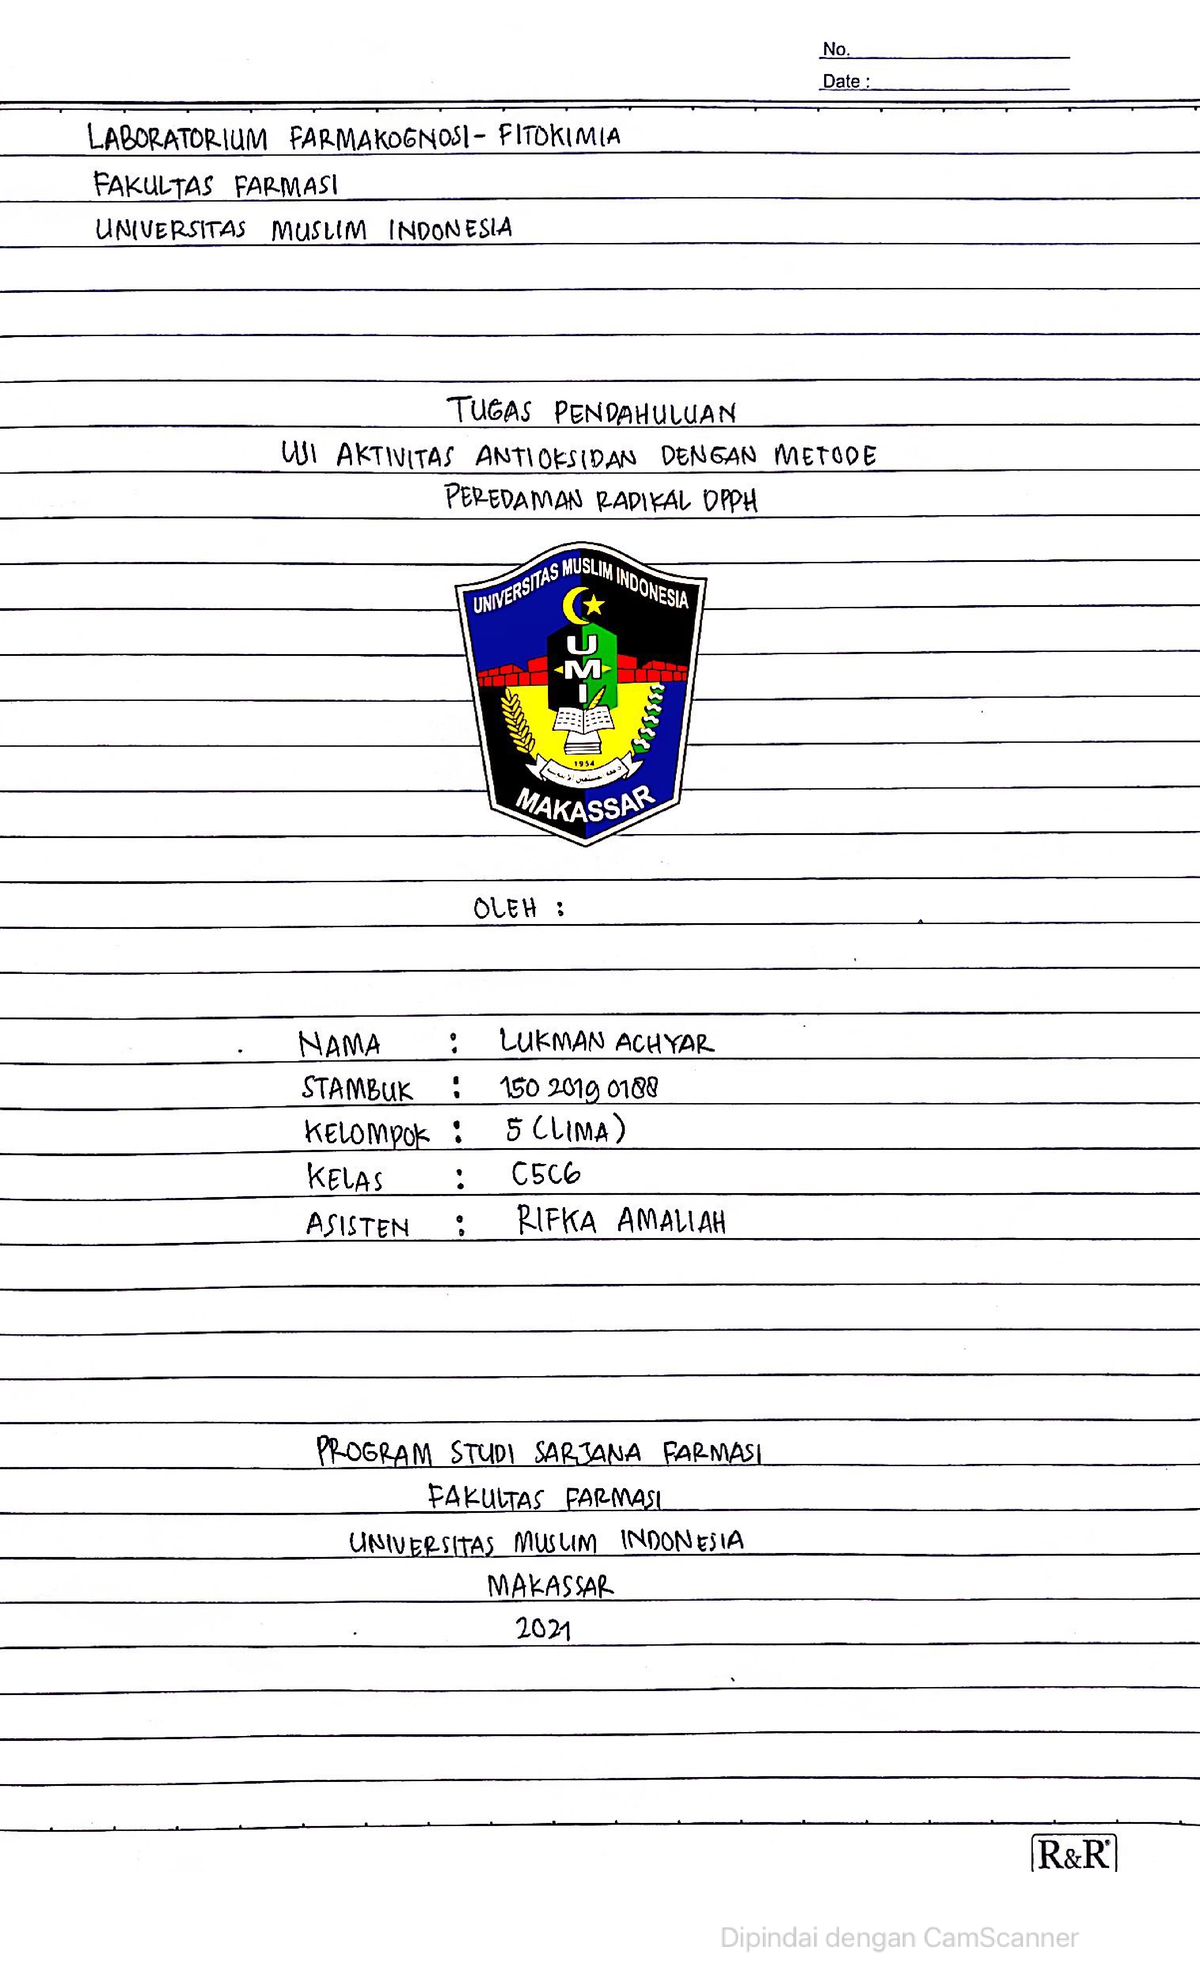 No.
Date :
LABORATORIUM FARMAKOGNOSI - FITOKIMIA
FAKULTAS FARMASI
UNIVERSITAS MUSLIM INDONESIA
TUGAS PENDAHULUAN
UJI AKTIVITAS ANTIOKSIDAN DENGAN METODE
PEREDAMAN RADIKAL DPPH
UNIVERSITAS MUSLIM INDONESIA
UMI
1954
MAKASSAR
OLEH :
NAMA : LUKMAN ACHYAR
STAMBUK : 150 2019 0188
KELOMPOK : 5 (LIMA)
KELAS : C5C6
ASISTEN : RIFKA AMALIAH
PROGRAM STUDI SARJANA FARMASI
FAKULTAS FARMASI
UNIVERSITAS MUSLIM INDONESIA
MAKASSAR
2021
R&R
Dipindai dengan CamScanner